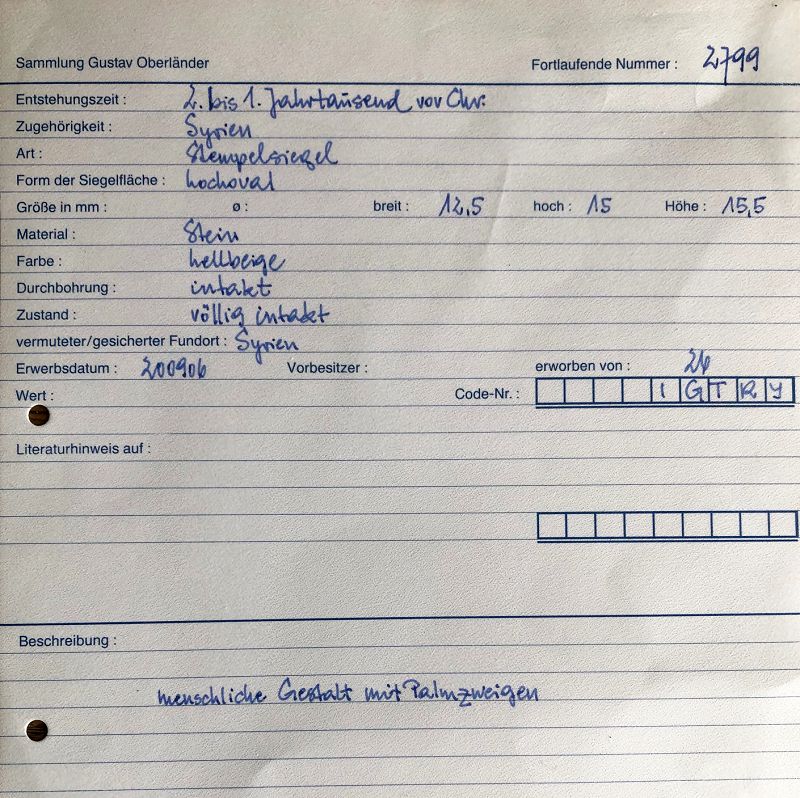 Sammlung Gustav Oberländer Fortlaufende Nummer : 2799
Entstehungszeit : 2. bis 1. Jahrtausend vor Chr.
Zugehörigkeit : Syrien
Art : Stempelsiegel
Form der Siegelfläche : hochoval
Größe in mm : ø : breit : 12,5 hoch : 15 Höhe : 15,5
Material : Stein
Farbe : hellbeige
Durchbohrung : intakt
Zustand : völlig intakt
vermuteter/gesicherter Fundort : Syrien
Erwerbsdatum : 200906 Vorbesitzer : erworben von :
Wert : Code-Nr. : I G T R Y
Literaturhinweis auf :
Beschreibung :
menschliche Gestalt mit Palmzweigen